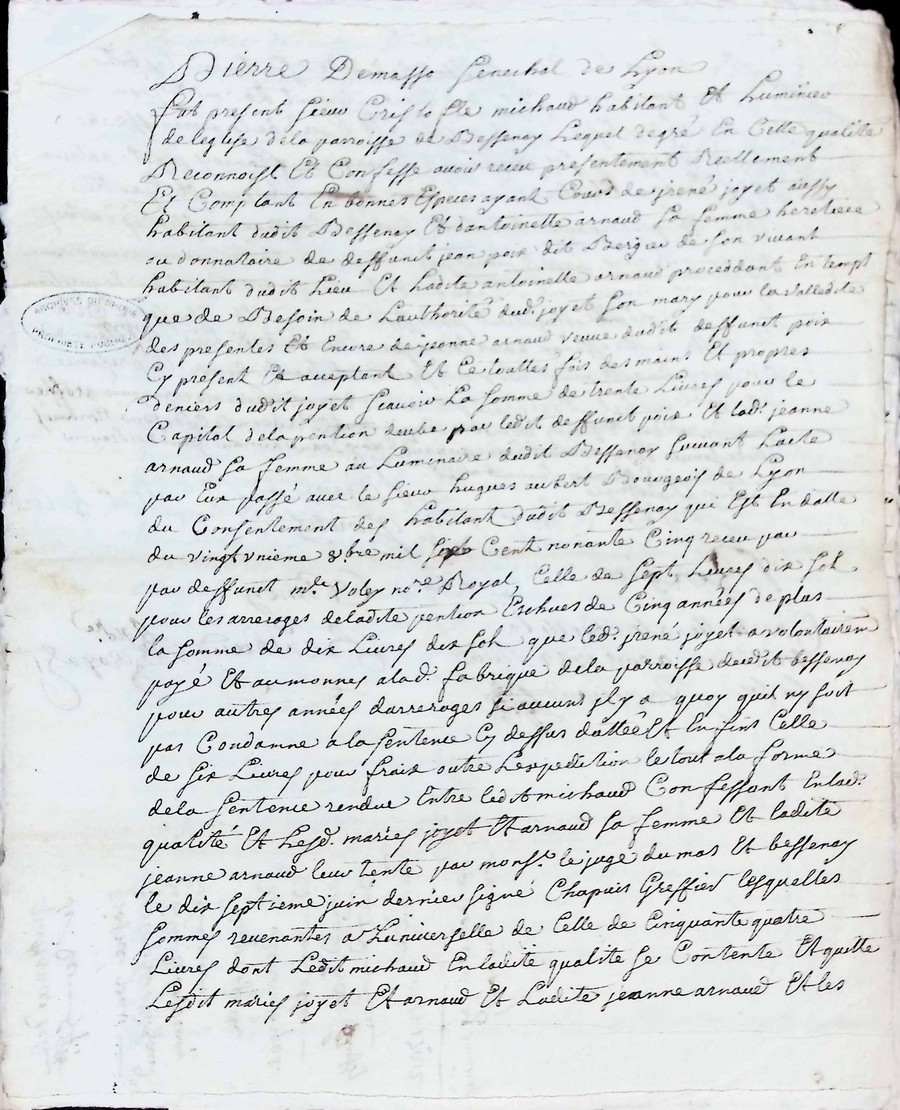 Pierre Demasso Senechal de Lyon
fut present sieur Cristofle michaud habitant Et Luminier
de leglise de la parroisse de Bessenay Lequel de gré En Cette qualité
Reconnoist Et Confesse avoir receu presentement Reellement
Et Comptant En bonnes Especes ayant Cours de jrené joyet aussy
habitant dudit Bessenay Et dantoinette arnaud sa femme heretiere
ou donnataire de deffunct jean poix dit Bergier de son vivant
habitant dudit Lieu Et Ladite antoinette arnaud procedant En tempt
que de Besoin de Lauthorité dud. joyet son mary pour la vallidite
des presentes Et Encore de jeanne arnaud veuve dudit deffunct poix
Cy present Et acceptant Et Ce touttes fois des mains Et propres
deniers dudit joyet scavoir La somme de trente Livres pour le
Capital de la pention deube par ledit deffunct poix Et lad. jeanne
arnaud sa femme au Luminaire dudit Bessenay suivant Lacte
par Eux passé avec le sieur hugues aubert Bourgeois de Lyon
du Consentement des habitant dudit Bessenay qui Est En datte
du vingt vnieme 8bre mil six Cent nonante Cinq receu par
par deffunct me. Voley nore. Royal, Celle de sept Livres dix sol
pour les arrerages de ladite pention Escheues de Cinq années de plus
la somme de dix Livres dix sol que led. jrené joyet a volontairem
payé Et aumonnes a lad. fabrique de la parroisse dudit bessenay
pour autres années darrerages si aucuns jl y a quoy quil ny soit
pas Condamne a la sentence Cy dessus dattée Et En fins Celle
de six Livres pour fraix outre Lexpedition le tout a la forme
de la sentence rendue Entre ledit michaud Confessant En lad.
qualité Et Lesd. mariés joyet Et arnaud sa femme Et ladite
jeanne arnaud leur tente par monsr. le juge du mas Et bessenay
le dix septieme juin dernier signé Chapuis Greffier lesquelles
sommes revenantes a Luniverselle de Celle de Cinquante quatre
Livres dont Ledit michaud En ladite qualité se Contente Et quitte
Lesdit mariés joyet Et arnaud Et Ladite jeanne arnaud Et les